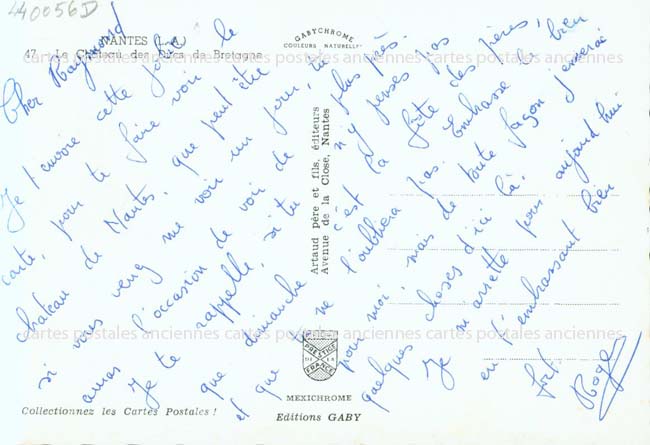 440056D
NANTES (L.-A.)
47. - Le Château des Ducs de Bretagne
GABYCHROME
COULEURS NATURELLES
Cher Raymond
Je t'envoie cette jolie
carte, pour te faire voir le
chateau de Nantes, que peut être
si vous venez me voir un jour, tu
auras l'occasion de voir de plus près.
Je te rappelle, si tu n'y penses pas
que dimanche c'est la fête des pères,
et que tu ne l'oubliera pas. Embrasse le bien
pour moi, mais de toute façon j'enverai
quelques choses d'ici là.
Je m'arrette pour aujourd'hui
en t'embrassant bien
fort.
Roge
Artaud père et fils, éditeurs
Avenue de la Close, Nantes
PRESTIGE
DE LA
FRANCE
MEXICHROME
Collectionnez les Cartes Postales !
Editions GABY
cartes postales anciennes cartes postales anciennes cartes postales anciennes
cartes postales anciennes cartes postales anciennes cartes postales anciennes